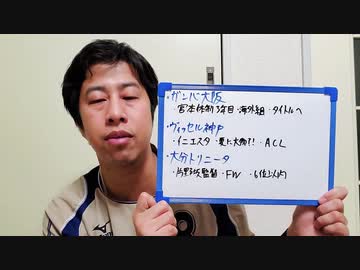 ・ガンバ大阪
・宮本体制3年目・海外組・タイトルへ
・ヴィッセル神戸
・イニエスタ・夏に大物?!・ACL
・大分トリニータ
・片野坂監督・FW・6位以内